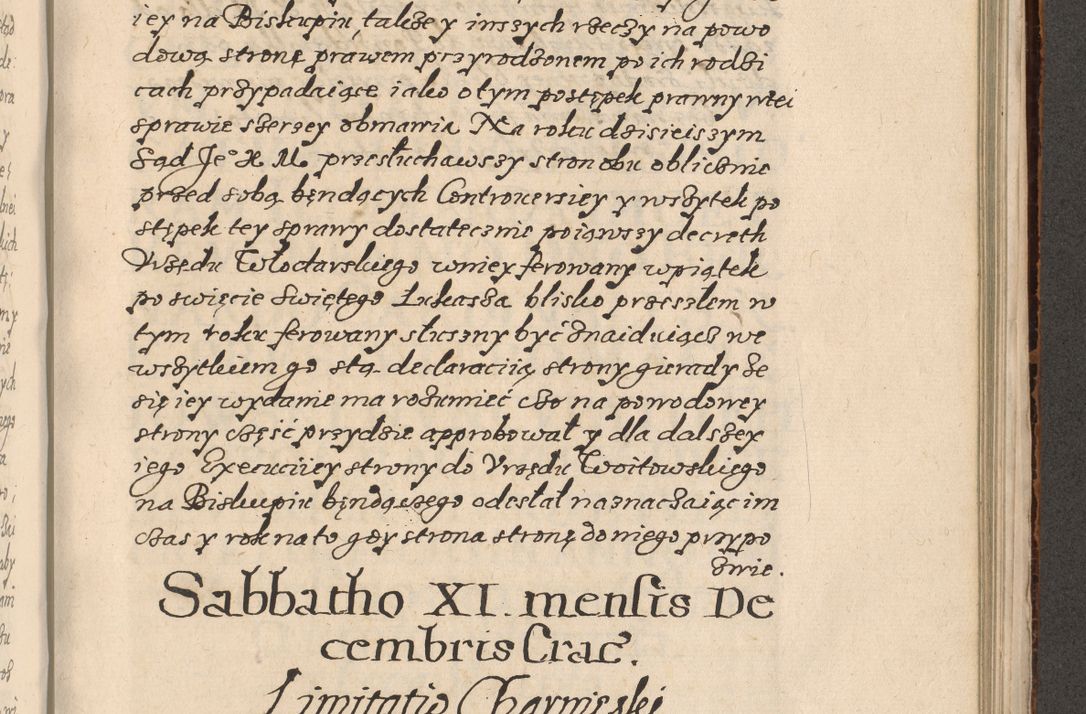 iey na Biskupiu, także y inszych rzeczy na powo
dową stronę prawem przyrodzonem po ich rodzi
cach przypadaiące iako o tym postępek prawny wtei
sprawie szerzey obmawia Na roku dzisieiszym
Sąd Je° X M. przesłuchawszy stron obu oblicznie
przed sobą będących Controwersiey y wszytek po
stępek tey sprawy dostatecznie poiąwszy decreth
Vrzędu Włodarskiego wniey ferowany wpiątek
po święcie świętego Łukasza blisko przeszłem w
tym roku ferowany słuszny być znaiduiącz we
wszytkiem go stą declaraciią strony gierady że
się iey wydanie ma rozumieć czo na powodowey
strony część przydzie approbował y dla dalszey
iego Execuciiey strony do Vrzędu Woitowskiego
na Biskupiu będączego odesłał naznaczaiąc im
czas y rok na to gdy strona stronę do niego przypo
zwie.
Sabbatho XI. mensis De
cembris Crac.
Limitatio Charwieski